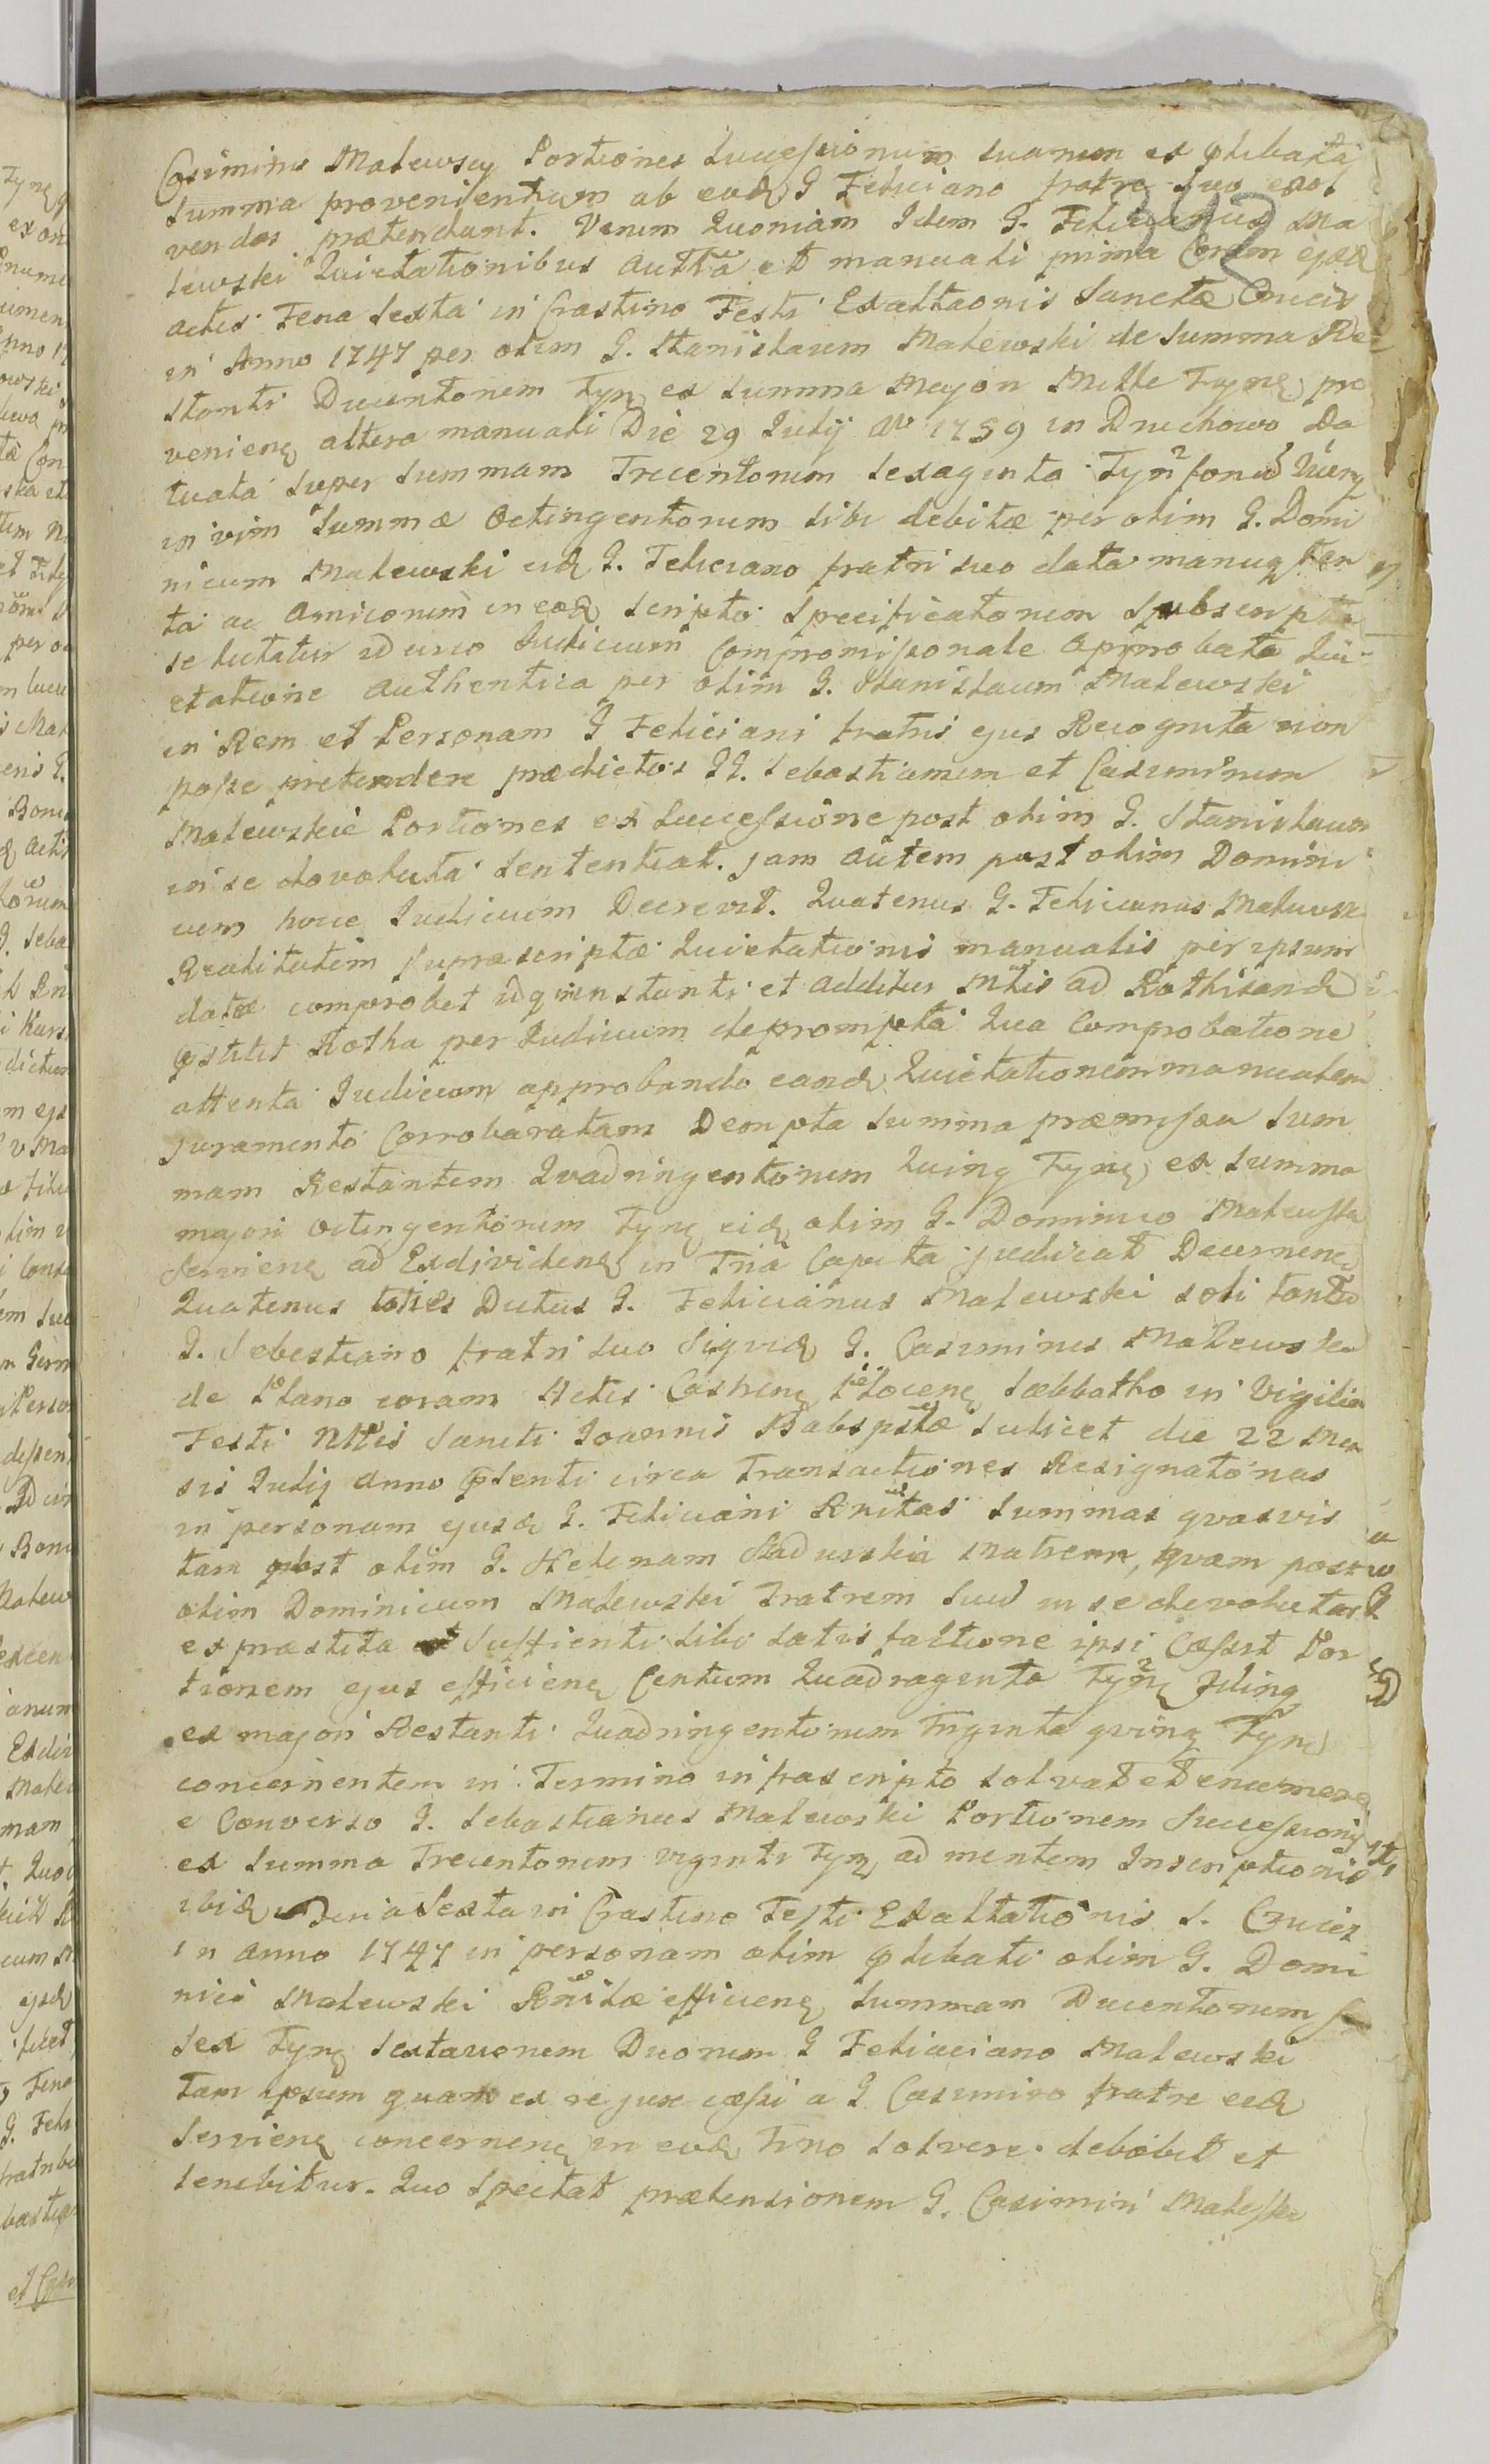 Casimirus Malewscy Portiones Successionum suarum ex ptibata
summa provenientium ab eod G Feliciano fratre suo exol
vendas prætendunt. Verum Quoniam Idem G. Felicianus Ma
lewski Quietationibus auttca et manuali prima Coram ejsd
actis Feria Sexta in Crastino Festi Exaltaonis Sanctæ Crucis
in Anno 1747 per olim G. Stanislaum Malewski de Summa Re
stanti Ducentorum Tyn ex summa Majori Mille Tynę pro
venienę altera manuali Die 29 Julij Ao 1759 in Druchowo Da
tuata super summam Trecentorum Sexaginta Tyn
in vim Summæ Octingentorum sibi debitæ per olim G. Domi
nicum Malewski eid G. Feliciano fratri suo data manuq ten
ta ac Amicorum in eod scripto Specificatorum Subscripta
se tutatur id circo Judicium Compromissionale Approbata Qui
etatione Authentica per olim G. Stanislaum Malewski
in Rem et Personam G Feliciani fratris ejus Recognita non
posse pretendere prædictos GG. Sebastianum et Casimirum
Malewskie Portiones ex Successione post olim G. Stanislaum
in se devoluta sententiat. jam autem post olim Domini
cum hocce Judicium Decrevit. Quatenus G. Felicianus Malewsk
Realitatem supra scriptæ Quietationis manualis per ipsum
datæ comprobet idq in instanti et additur Mtis ad Rothisand
pstitit Rotha per Judicium deprompta Qua Comprobatione
attenta Judicium approbando eand Quietationem manualem
juramento Corroboratam Dempta summa præmissa Sum
mam Restantem Quadringentorum Quinq Tynę ex Summa
majori octingentorum Tynę eid olim G. Dominico Malewski
Servienę ad Exdividenę in Tria Capita judicat Decernenę
Quatenus toties Dictus G. Felicianus Malewski soli tantu
G. Sebestiano fratri suo Siquid G. Casimirus Malewski
de Plano coram Actis Castrenę Plocenę Sabbatho in Vigilia
Festi Nttis Sancti Joannis Babsptæ scilicet die 22 Men
sis Julij anno psenti circa Transactiones Resignatorias
in personam ejusd G. Feliciani Rnitas Summas qvasvis
tam post olim G. Helenam Stadurska Matrem, qvam post
olim Dominicum Malewski Fratrem suu in se devolutas
ex præstita Suffienti sibi satis factione ipsi Cæssit Por
tionem ejus efficienę Centum Quadraginta Tynę
ex majori Restanti Quadringentorum Triginta qvinq Tynę
concernentem in Termino infrascripto solvat et enumere
e Converso G. Sebastianus Malewski Portionem Successionis
ex Summa Trecentorum viginti Tynę ad mentem Inscriptionis
ibid Feria Sexta in Crastino Festi Exaltationis S. Crucis
in anno 1747 in personam olim ptibati olim G. Domi
nici Malewski Rnitæ efficienę Summam Ducentorum
Sex Tynę sextarionem Duorum G Feliaciano Malewski
Tam ipsum quam ex re jure cæssi a G Casimiro fratre eid
Servienę concernenę in eod Trno solvere debebit et
tenebitur. Quo Spectat prætensionem G. Casimiri Malewski